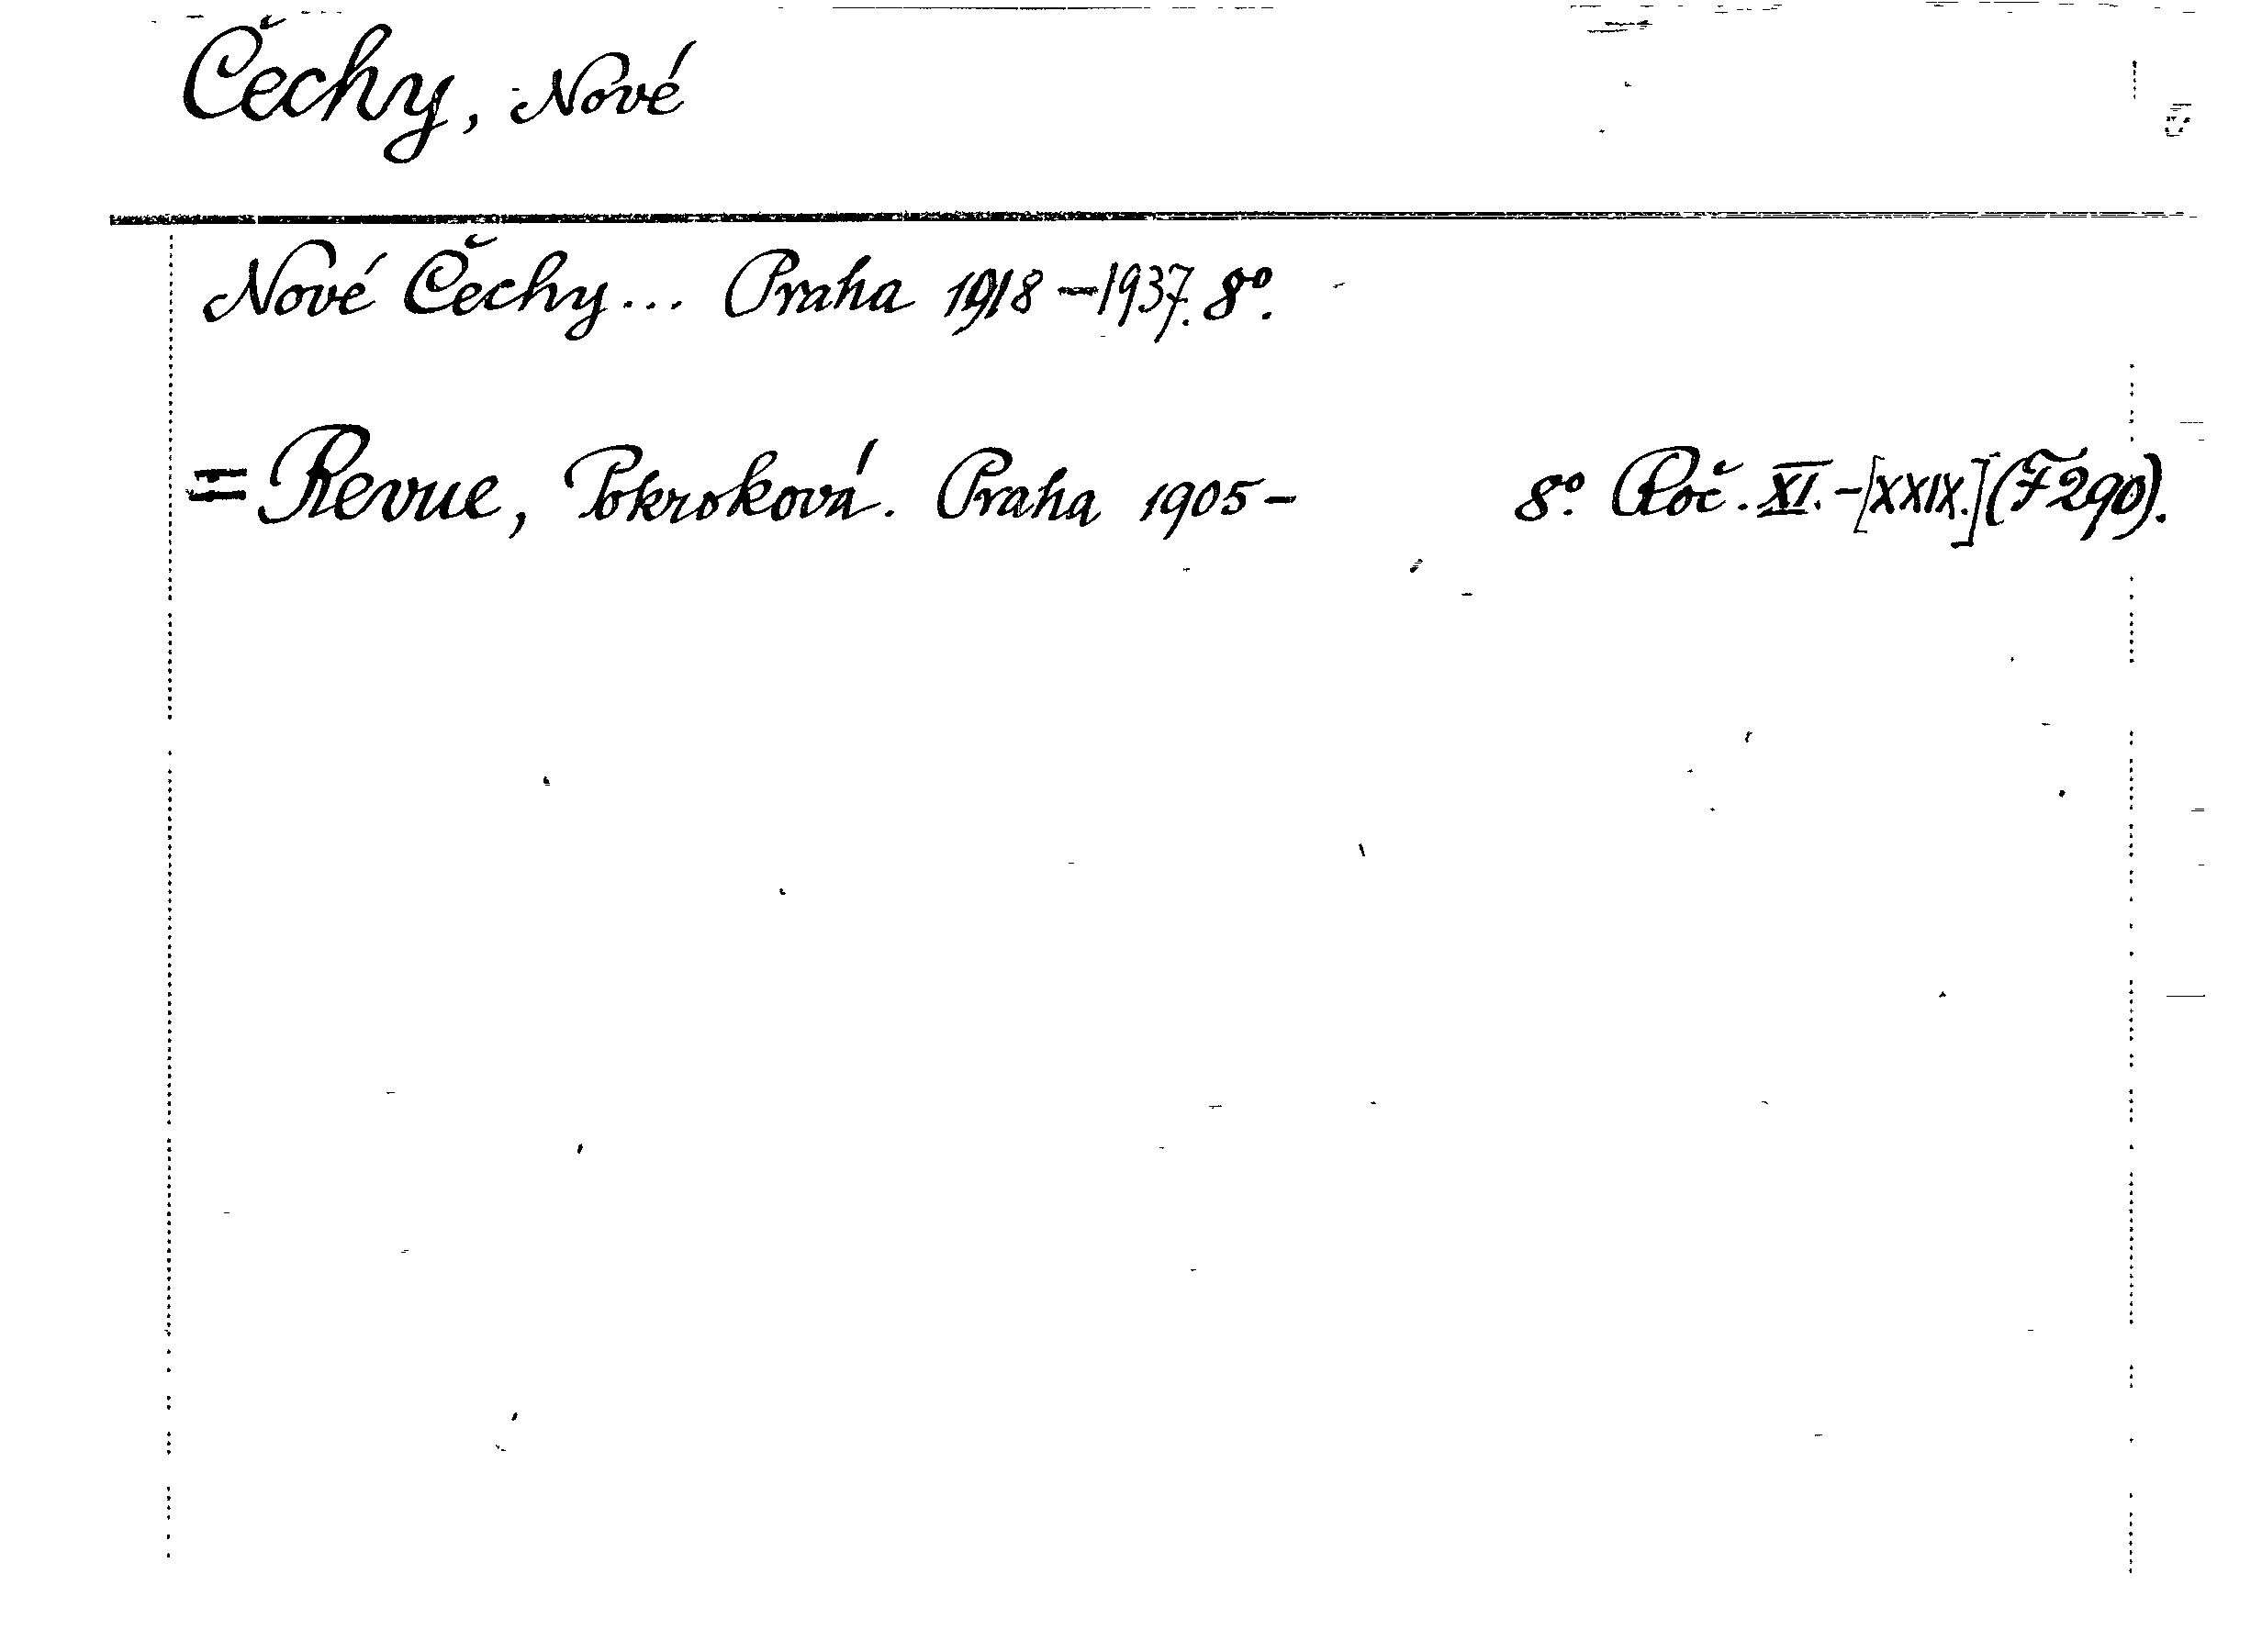 Čechy, Nové
Nové Čechy... Praha 1918-1937. 8°.
= Revue, Pokroková. Praha 1905- 8°. Roč. XI.-[XXIX.] (F 290).